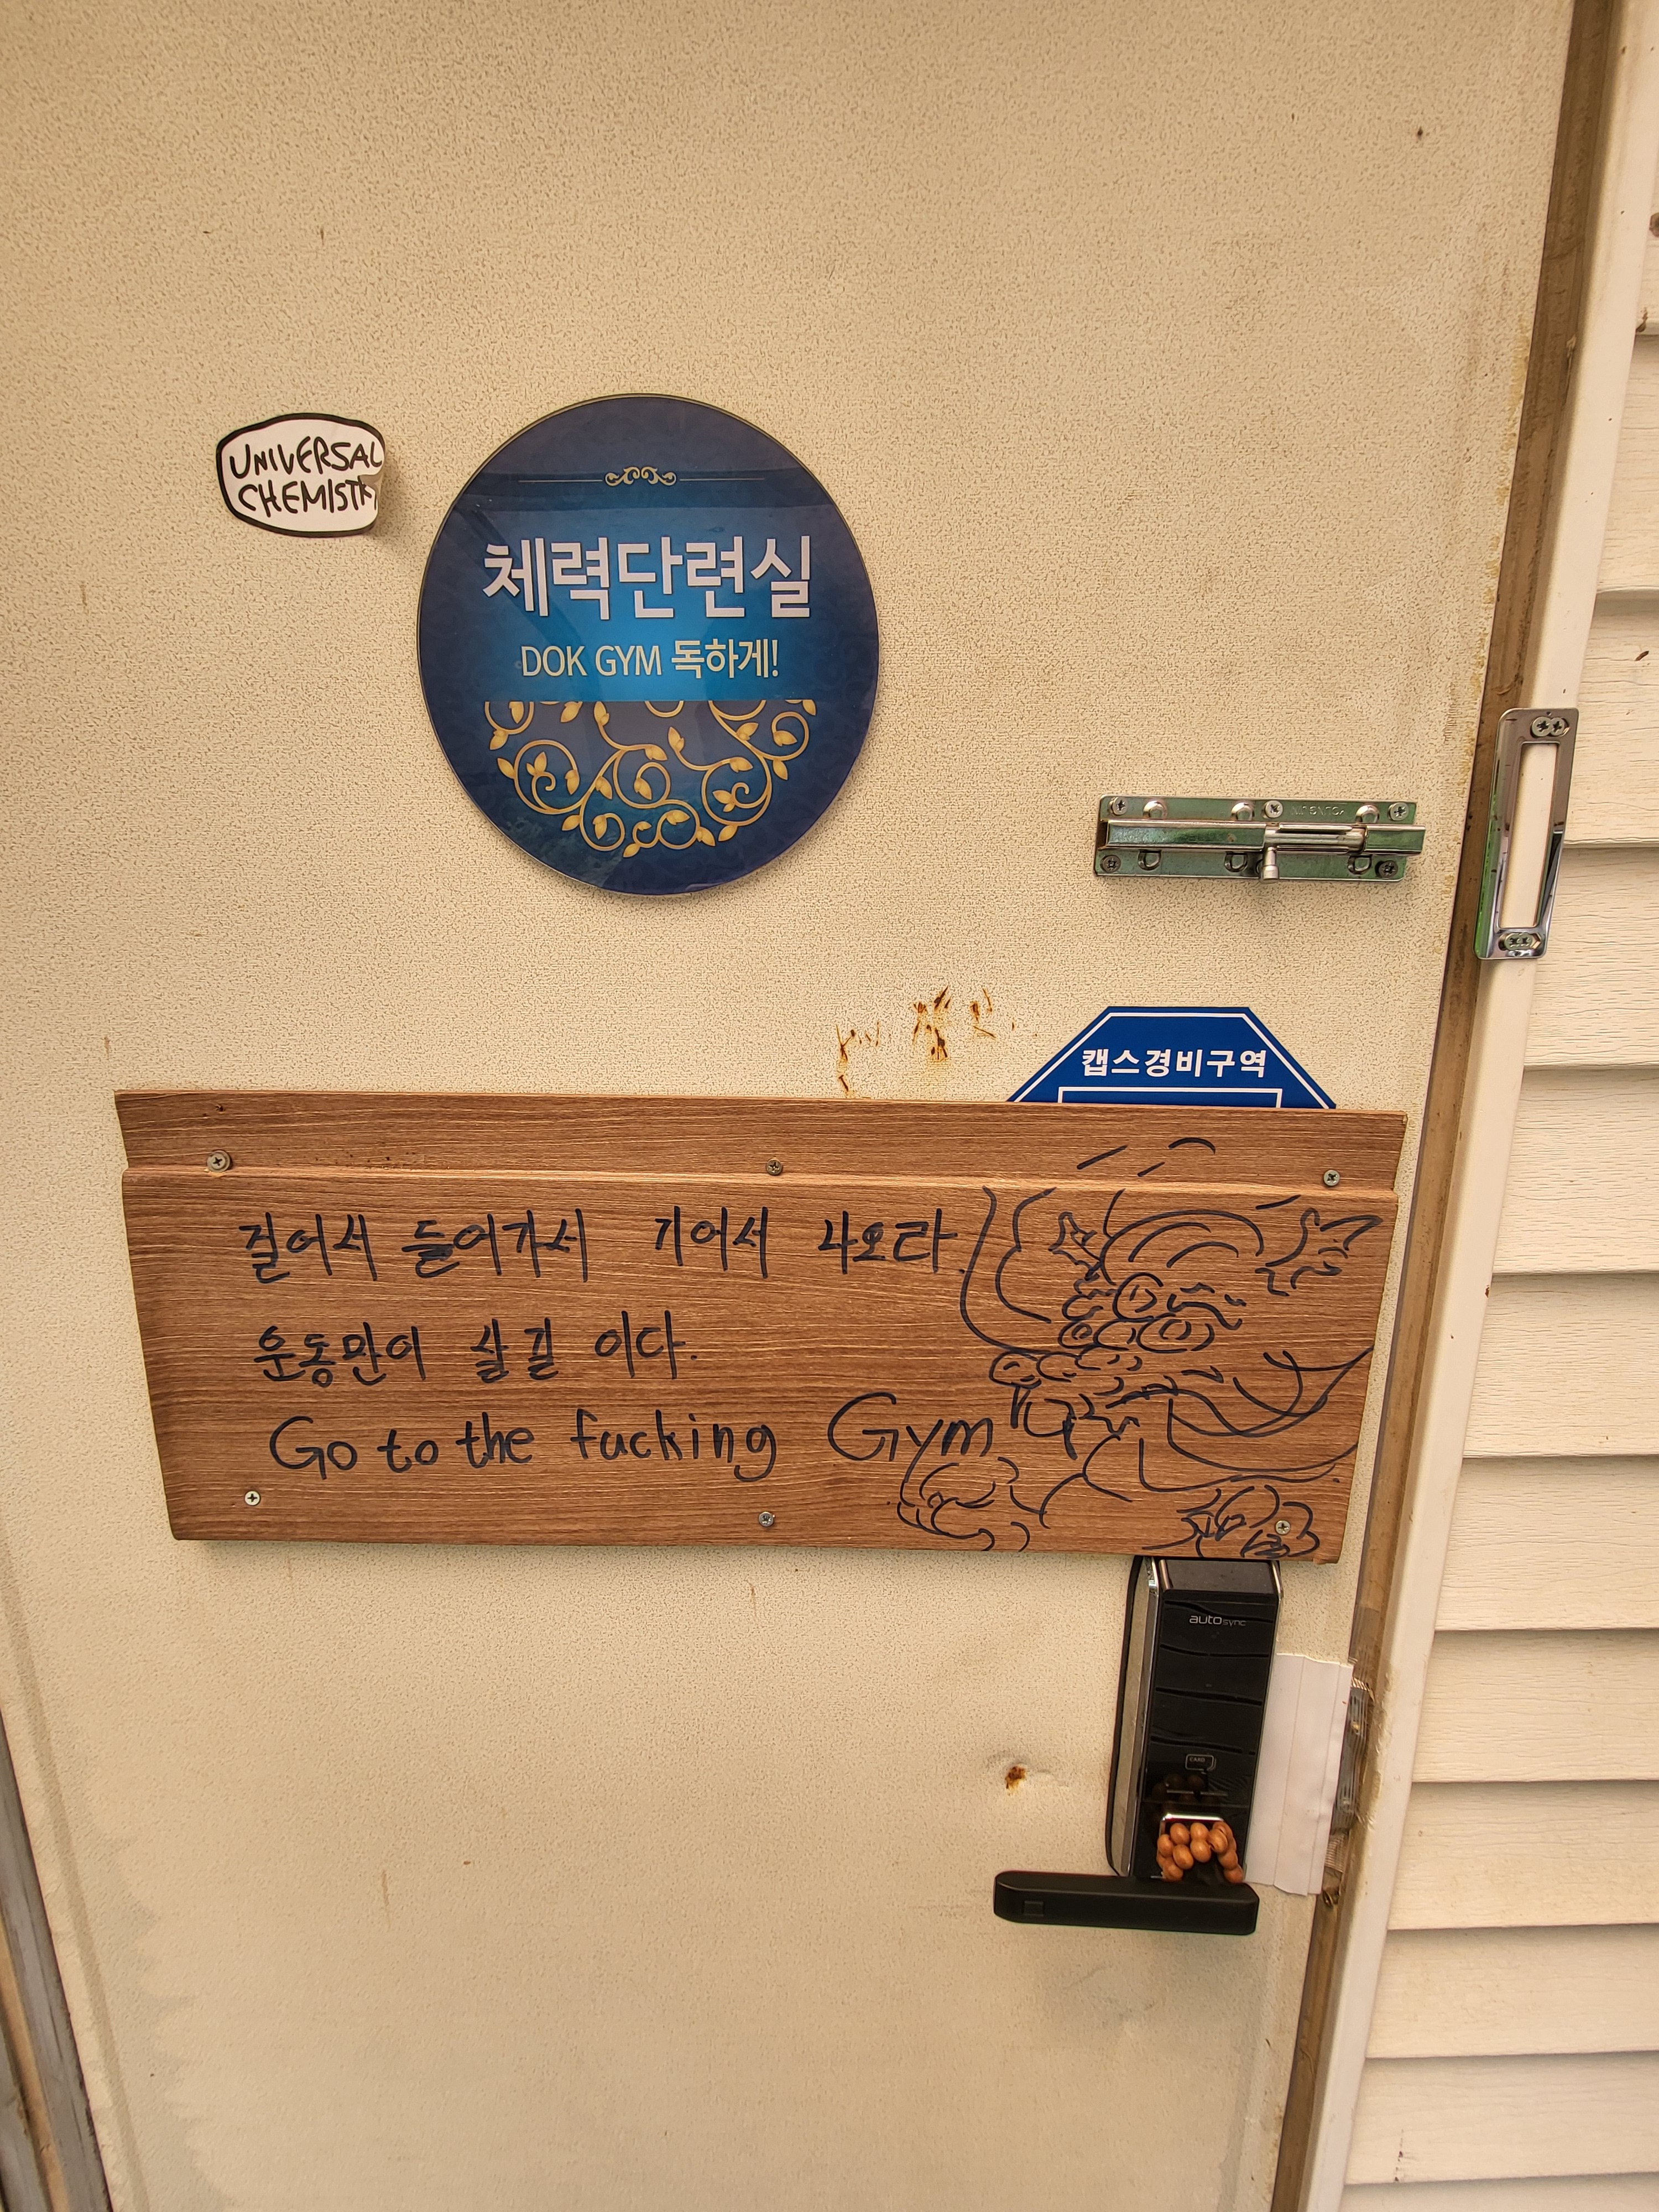 UNIVERSAL
CHEMISTR
체력단련실
DOK GYM 독하게!
캡스경비구역
걸어서 들어가서 기어서 나오라.
운동만이 살길 이다.
Go to the fucking Gym
autosync
CARD